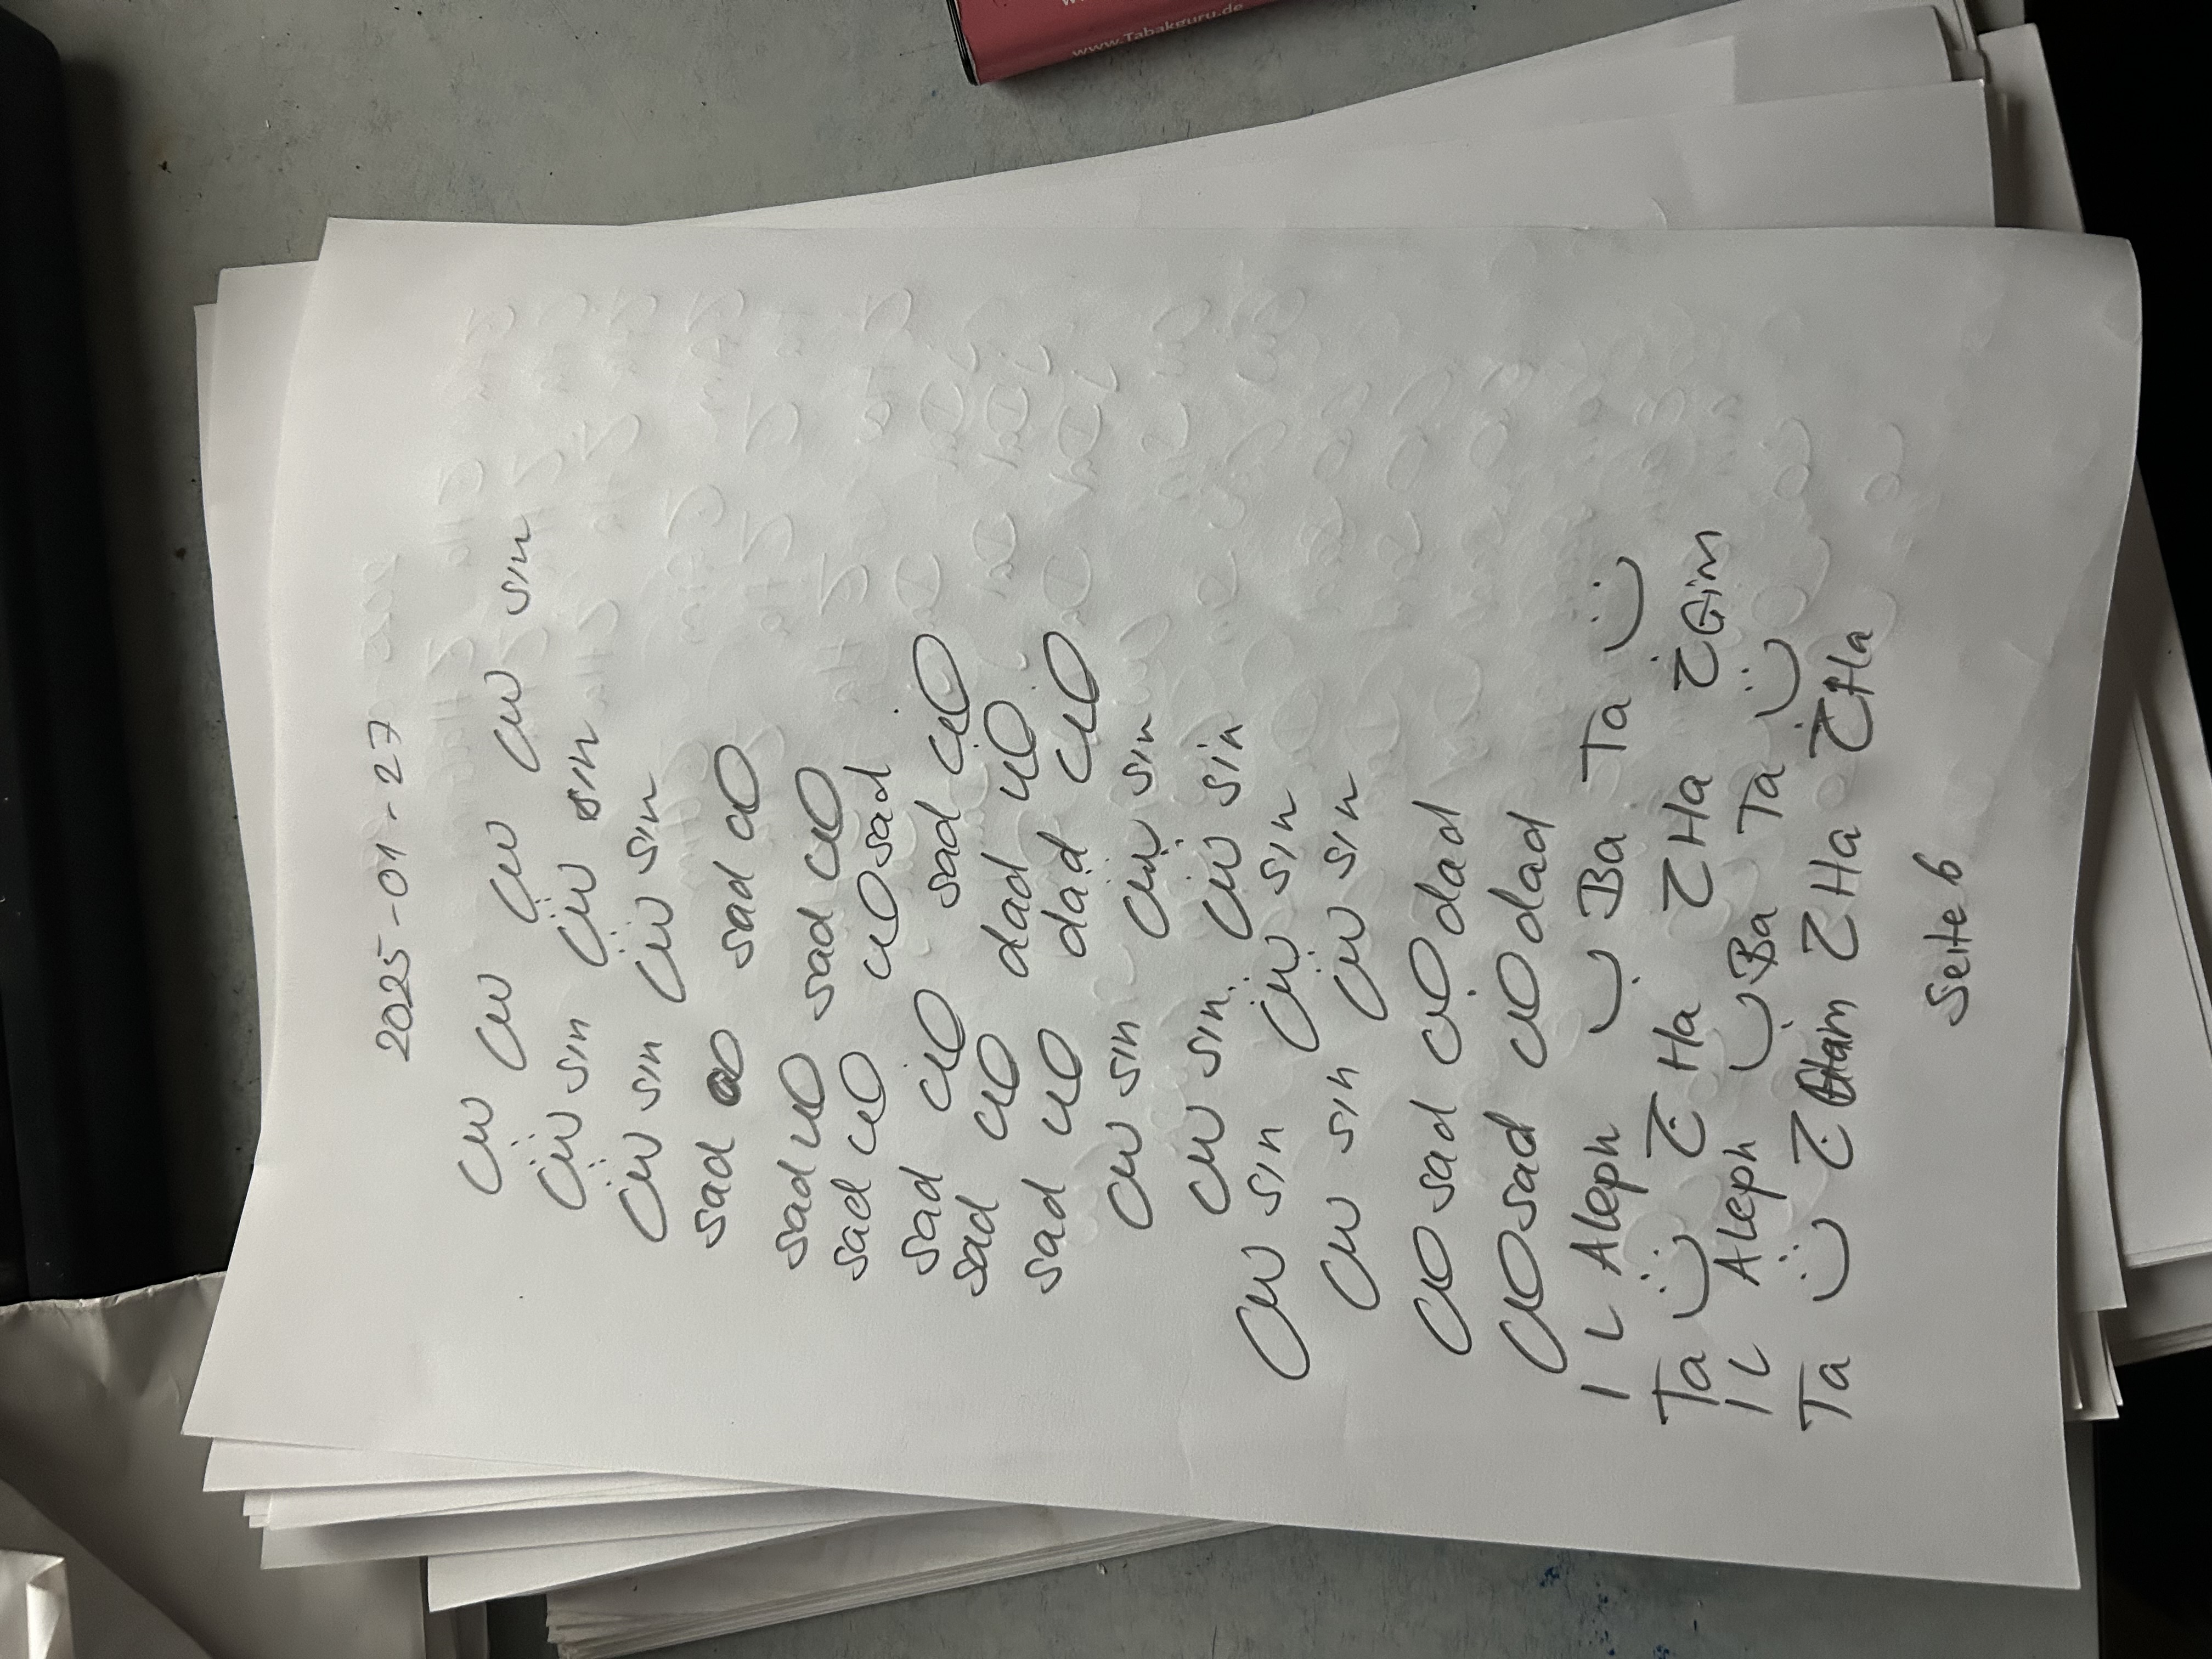 www.Tabakguru.de
2025-01-27
س س س س sin
ش sin ش sin
ش sin ش sin
sad ص sad ص
sad ص sad ص
sad ص ص sad
sad ض sad ض
sad ص dad ض
sad ص dad ض
س sin ش sin
س sin ش sin
س sin ش sin
س sin ش sin
ص sad ض dad
ص sad ض dad
ا L Aleph ب Ba Ta ت
Ta ت ج Ha ح Ha خ Gim
ا L Aleph ب Ba Ta ت
Ta ت ج ح Ha خ Ha
Seite 6